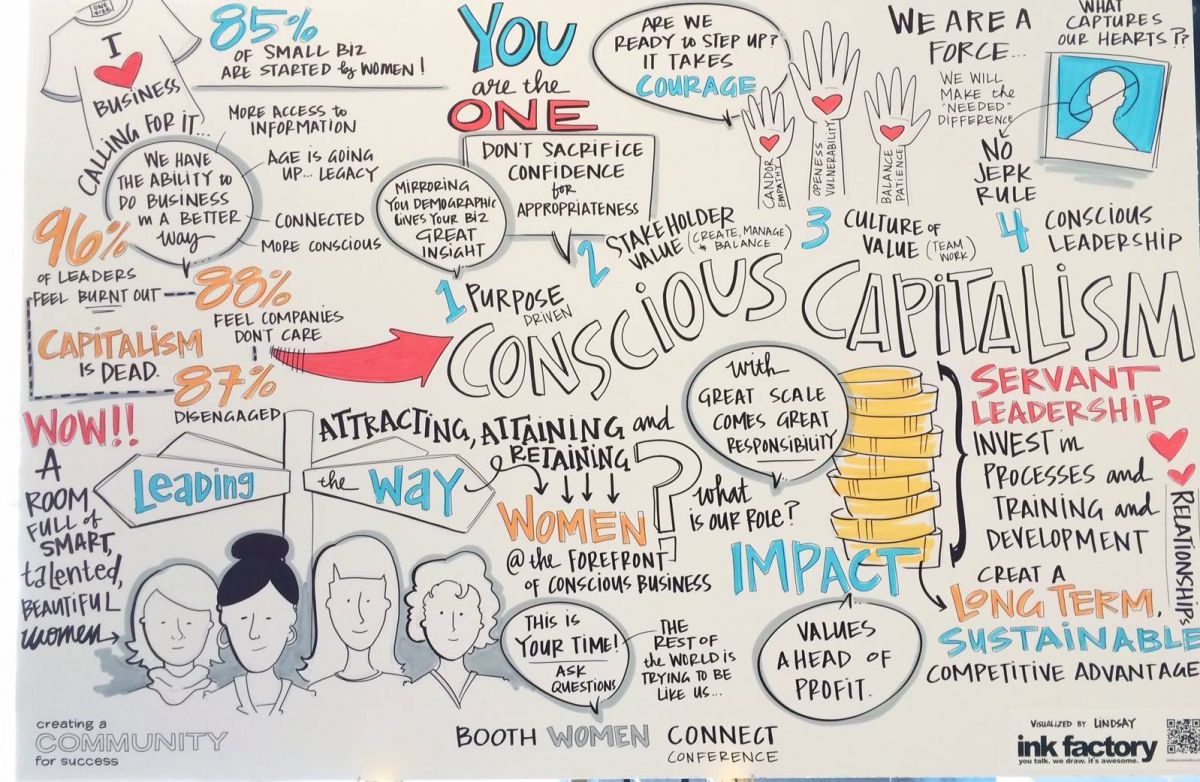 ONE
SIZE
I
BUSINESS
CALLING FOR IT...
85%
OF SMALL BIZ
ARE STARTED by WOMEN!
MORE ACCESS to
INFORMATION
AGE IS GOING
UP... LEGACY
CONNECTED
MORE CONSCIOUS
WE HAVE
THE ABILITY to
DO BUSINESS
in A BETTER
way
96%
OF LEADERS
FEEL BURNT OUT
88%
FEEL COMPANIES
DON'T CARE
CAPITALISM
IS DEAD.
87%
DISENGAGED
YOU
are the
ONE
MIRRORING
YOU DEMOGRAPHIC
GIVES YOUR BIZ
GREAT
INSIGHT
DON'T SACRIFICE
CONFIDENCE
for
APPROPRIATENESS
ARE WE
READY to STEP UP?
IT TAKES
COURAGE
CANDOR
EMPATHY
OPENESS
VULNERABILITY
BALANCE
PATIENCE
WE ARE A
FORCE...
WE WILL
MAKE the
"NEEDED"
DIFFERENCE
NO
JERK
RULE
WHAT
CAPTURES
OUR HEARTS??
1 PURPOSE
DRIVEN
2 STAKEHOLDER
VALUE (CREATE, MANAGE
+ BALANCE)
3 CULTURE of
VALUE (TEAM
WORK)
4 CONSCIOUS
LEADERSHIP
CONSCIOUS CAPITALISM
WOW!!
A
ROOM
FULL of
SMART,
talented,
BEAUTIFUL
women
Leading
the Way
ATTRACTING, ATTAINING and
RETAINING
WOMEN
@ the FOREFRONT
OF CONSCIOUS BUSINESS
?
what
IS OUR ROLE?
with
GREAT SCALE
COMES GREAT
RESPONSIBILITY
IMPACT
VALUES
AHEAD OF
PROFIT.
SERVANT
LEADERSHIP
INVEST in
PROCESSES and
TRAINING and
DEVELOPMENT
RELATIONSHIPS
CREAT A
LONG TERM,
SUSTAINABLE
COMPETITIVE ADVANTAGE
THIS IS
YOUR TIME!
ASK
QUESTIONS
THE
REST OF
the WORLD IS
TRYING TO BE
LIKE US...
creating a
COMMUNITY
for success
BOOTH WOMEN CONNECT
CONFERENCE
VISUALIZED BY LINDSAY
ink factory
you talk. we draw. it's awesome.